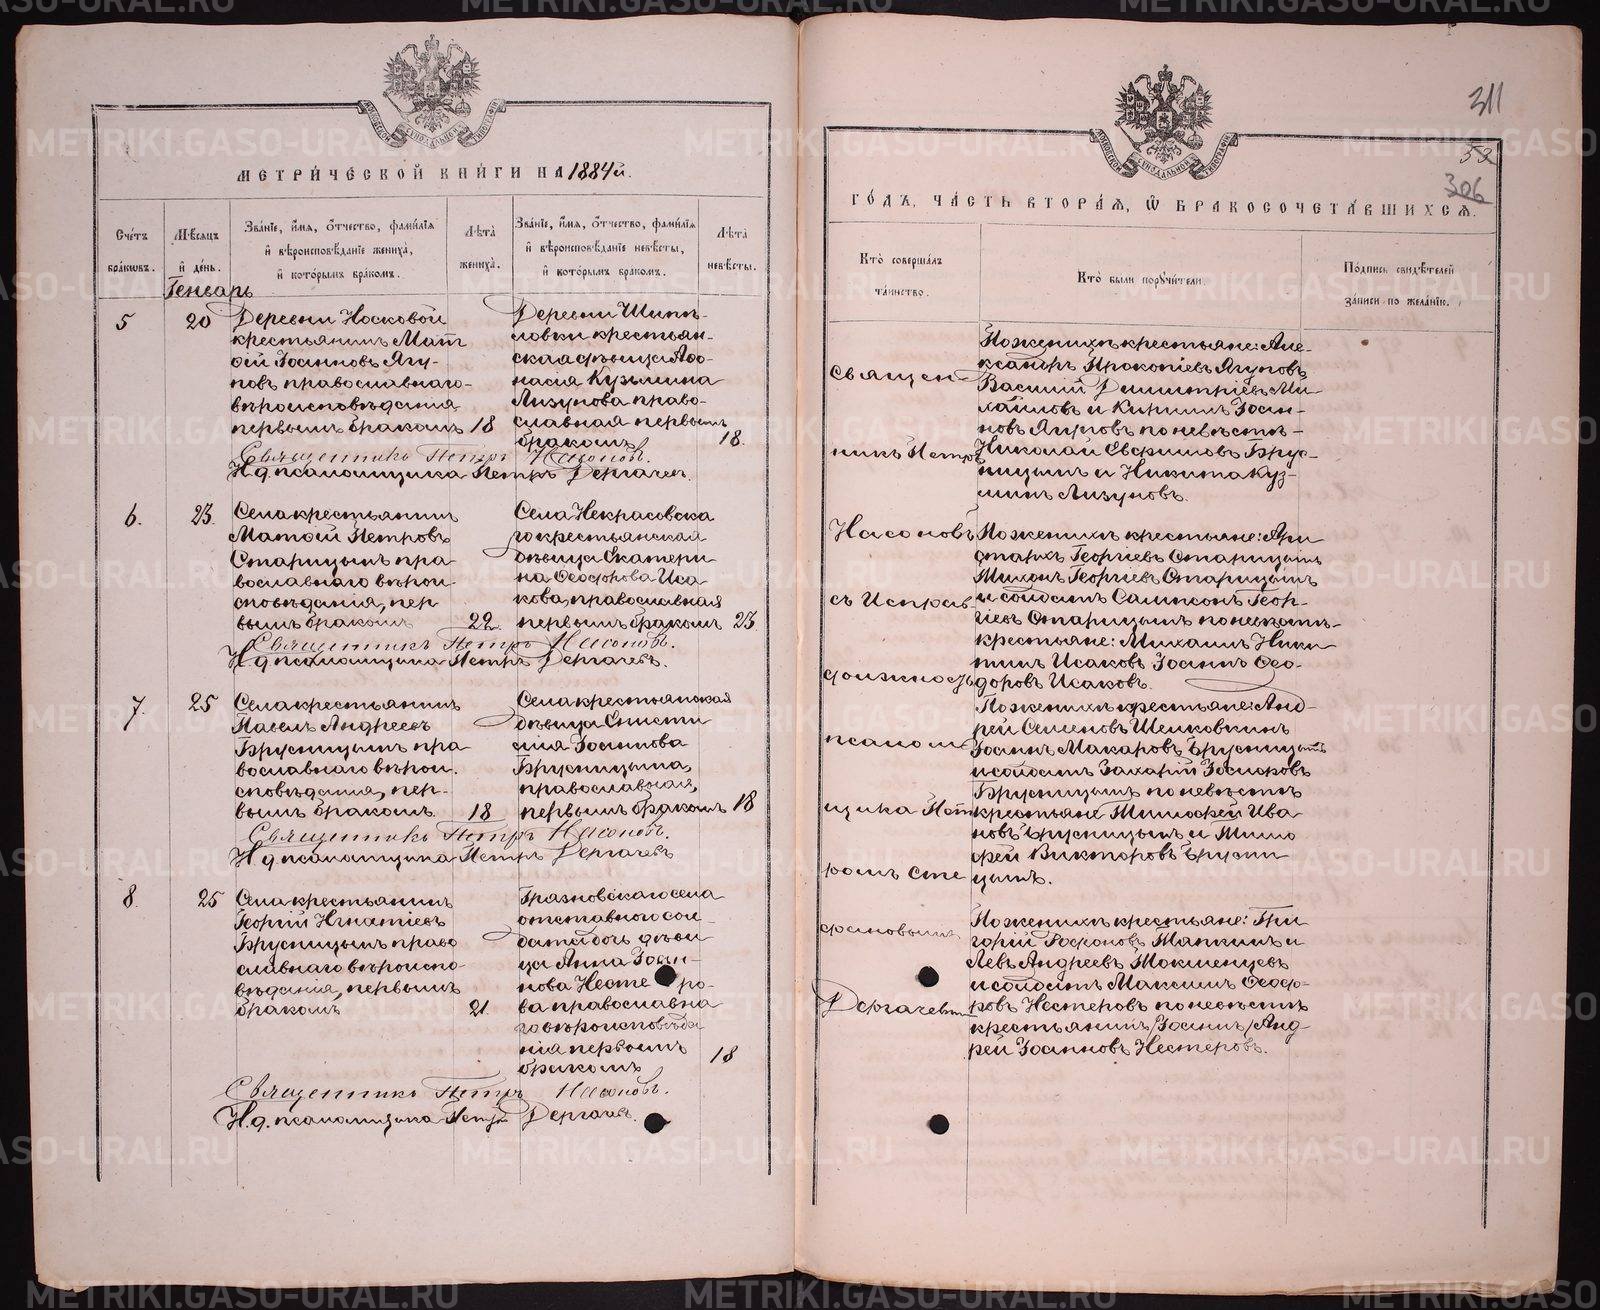 МЕТРИ́ЧЕСКОЙ КНИ́ГИ НА 1884 й.
Сче́тъ бра́ковъ.
Мѣ́сяцъ и̂ де́нь.
Зва́нїе, и҆́мя, ѻ҆́тчество, фами́лїя и҆ вѣ̀роисповѣ́данїе жениха̀, и҆ кото́рымъ бра́комъ.
Лѣ́та жениха̀.
Зва́нїе, и҆́мя, ѻ҆́тчество, фами́лїя и҆ вѣ̀роисповѣ́данїе невѣ́сты, и҆ кото́рымъ бра́комъ.
Лѣ́та невѣ́сты.
Генварь
5
20
Деревни Носковой
крестьянинъ Мат
ѳій Іоанновъ Ягу-
повъ православнаго
вѣроисповѣданія
первымъ бракомъ
18
Деревни Шипи-
ловки крестьян-
ская дѣвица Аѳо-
насія Кузьмина
Лизунова право-
славная первымъ
бракомъ
18.
Священникъ Петръ Насоновъ.
И. д. псаломщика Петръ Дергачев.
6.
23.
Села крестьянинъ
Матѳій Петровъ
Старицынъ пра-
вославнаго вѣрои-
сповѣданія, пер-
вымъ бракомъ
22.
Села Некрасовска
го крестьянская
дѣвица Екатери-
на Ѳеодорова Иса-
кова, православная
первымъ бракомъ
23
Священникъ Петръ Насоновъ.
И. д. псаломщика Петръ Дергачевъ.
7.
25
Села крестьянинъ
Павелъ Андреевъ
Брусницынъ пра-
вославнаго вѣрои-
сповѣданія, пер-
вымъ бракомъ
18
Села крестьянская
дѣвица
Іоаннова
Брусницына,
православная,
первымъ бракомъ
18
Священникъ Петръ Насоновъ.
И. д. псаломщика Петръ Дергачевъ
8.
25
Села крестьянинъ
Георгій Игнатіевъ
Брусницынъ право
славнаго вѣроиспо-
вѣданія, первымъ
бракомъ
21.
Грязновскаго села
отставного сол-
дата дочь дѣви
ца Анна Іоан-
нова Несте ро-
ва православна
го вѣроисповѣда
нія первымъ
бракомъ
18
Священникъ Петръ Насоновъ.
И. д. псаломщика Петръ Дергачев.
311
53
306
ГО́ДЪ, ЧА́СТЬ ВТОРА́Я, Ѽ БРАКОСОЧЕТА́ВШИХСЯ.
Кто̀ соверша́лъ та́инство.
Кто̀ бы́ли порꙋчи́тели.
По́дпись свидѣ́телей за́писи по жела́нїю.
Священ-
никъ Петръ
Насоновъ
съ Исправ-
должность
псалом-
щика Пет
ромъ Сте
фановымъ
Дергачевым
По женихѣ крестьяне: Але-
ксандръ Прокопіевъ Ягуповъ
Василій Димитріевъ Ми-
хайловъ и Кириллъ Іоан-
новъ Ягуповъ по невѣстѣ-
Николай Евфимовъ Брус-
ницынъ и Никита Куз-
минъ Лизуновъ.
По женихѣ крестьяне: Ари
стархъ Георгіевъ Старицынъ
Тихонъ Георгіевъ Старицынъ
и солдатъ Сампсонъ Геор-
гіевъ Старицынъ по невѣстѣ-
крестьяне: Михаилъ Ники-
тинъ Исаковъ Іоаннъ Ѳео-
доровъ Исаковъ.
По женихѣ крестьяне: Анд-
рей Семеновъ
Іоаннъ Макаровъ Брусницынъ
и солдатъ Захарій
Брусницынъ по невѣстѣ
крестьяне Тимоѳей Ива
новъ Брусницынъ и Тимо
ѳей Викторовъ Брусни
цынъ.
По женихѣ крестьяне: Гри
горій Тяпкинъ и
Левъ Андреевъ Токменцевъ
и солдатъ Максимъ Ѳеодо-
ровъ Нестеровъ по невѣстѣ
крестьянинъ Іоаннъ Анд-
рей Іоанновъ Нестеровъ.
METRIKI.GASO-URAL.RU